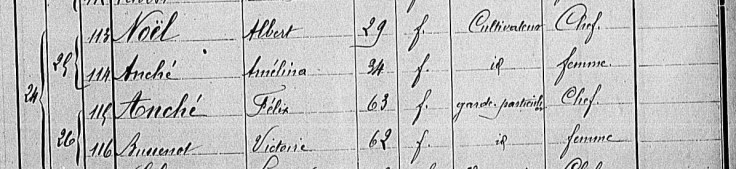 113 Noël Albert 29 f. Cultivateur Chef.
24 25 114 Anché Amélina 34 f. id femme.
115 Anché Félix 63 f. garde-particulier Chef.
26 116 Victorie 62 f. id femme